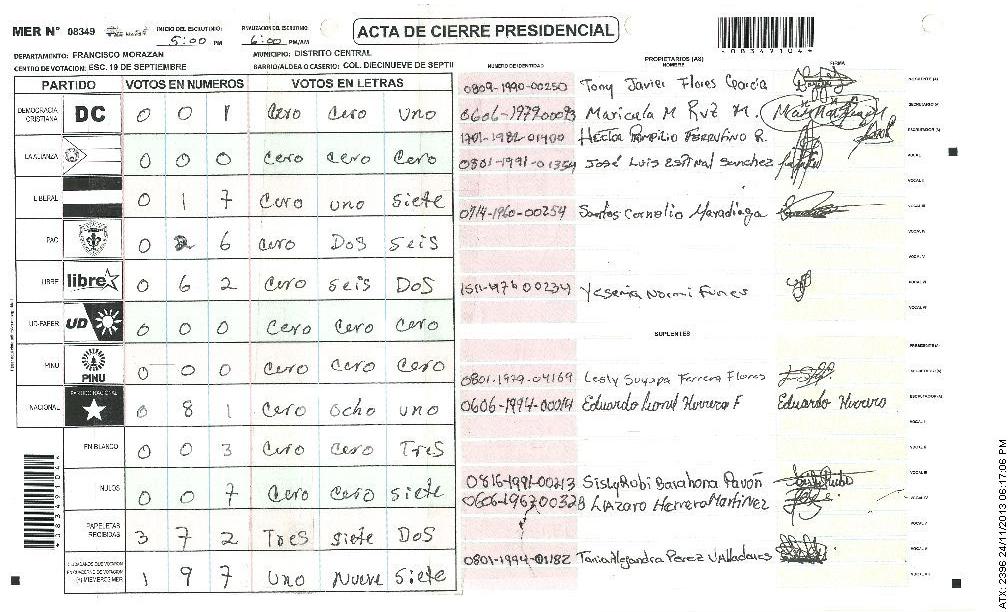 MER N° 08349
INICIO DEL ESCRUTINIO: 5:00 PM
FINALIZACION DEL ESCRUTINIO: 6:00 PM/AM
ACTA DE CIERRE PRESIDENCIAL
DEPARTAMENTO: FRANCISCO MORAZAN
MUNICIPIO: DISTRITO CENTRAL
CENTRO DE VOTACION: ESC. 19 DE SEPTIEMBRE
BARRIO/ALDEA O CASERIO: COL. DIECINUEVE DE SEPTI
PARTIDO VOTOS EN NUMEROS VOTOS EN LETRAS
DEMOCRACIA CRISTIANA DC 0 0 1 Cero Cero uno
LA ALIANZA 0 0 0 Cero Cero Cero
LIBERAL 0 1 7 Cero uno Siete
PAC 0 2 6 Cero Dos Seis
LIBRE libre 0 6 2 Cero Seis Dos
UD-FAPER UD 0 0 0 Cero Cero Cero
PINU PINU 0 0 0 Cero Cero Cero
NACIONAL PARTIDO NACIONAL 0 8 1 Cero ocho uno
EN BLANCO 0 0 3 Cero Cero Tres
NULOS 0 0 7 Cero Cero Siete
PAPELETAS RECIBIDAS 3 7 2 Tres Siete Dos
1 9 7 uno Nueve Siete
NUMERO DE IDENTIDAD
PROPIETARIOS (AS)
NOMBRE
FIRMA
0809-1990-00250 Tony Javier Flores Garcia
0606-1979 00093 Maricela M Ruz M.
1701-1982-01900 Hector Pompilio Ferrufino R.
0801-1991-01354 José Luis Espinal Sanchez
0714-1960-00254 Santos Cornelio Maradiaga
1511-1976 00234 Yesenia Normi Funes
SUPLENTES
0801-1979-04169 Lesly Suyapa Ferrera Flores
0606-1994-00014 Eduardo Leonel Herrera F Eduardo Herrero
0816-1991-00213 Sisly Robi Barahona Pavón
0606-1967 00328 Lázaro Herrera Martinez
0801-1994-01182 Tania Alejandra Perez Valladares
ATX: 2396 24/11/2013 06:17:06 PM